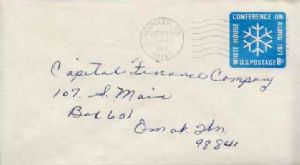 WHITE HOUSE
CONFERENCE ON
AGING 1971
U.S. POSTAGE
Capital Finance Company
107. S. Main
Box 601
Omak Wn.
98841